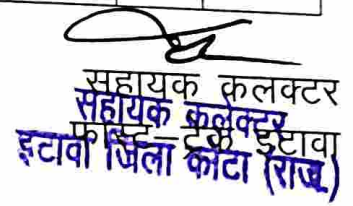 सहायक कलक्टर
सहायक कलेक्टर
फास्ट-ट्रेक इटावा
इटावा जिला कोटा (राज.)